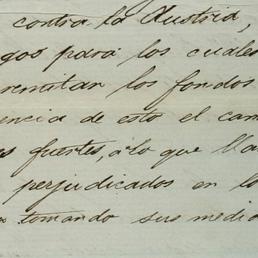 contra la Austria,
gos para los cuales
remitan los fondos
encia de esto el cam
es fuertes, a lo que lla
perjudicados en lo
tomando sus medi